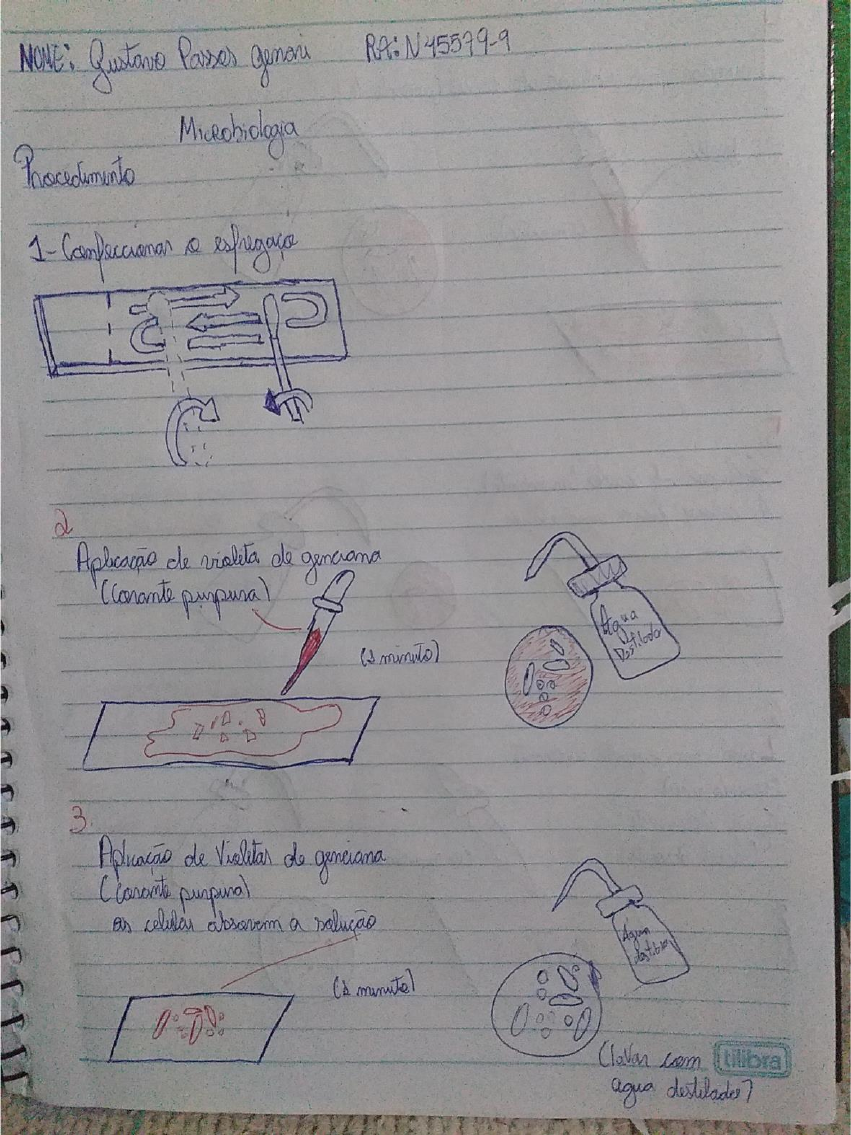 NOME: Gustavo Passos genari RA: N45579-9
Microbiologia
Procedimento
1- Confeccionar o esfregaço
2
Aplicação de violeta de genciana
(Corante purpura)
(1 minuto)
Água
Destilada
3.
Aplicação de Violetas de genciana
(Corante purpura)
as celulas absorvem a solução
(1 minuto)
Água
destilada
(lavar com
agua destilada)
tilibra